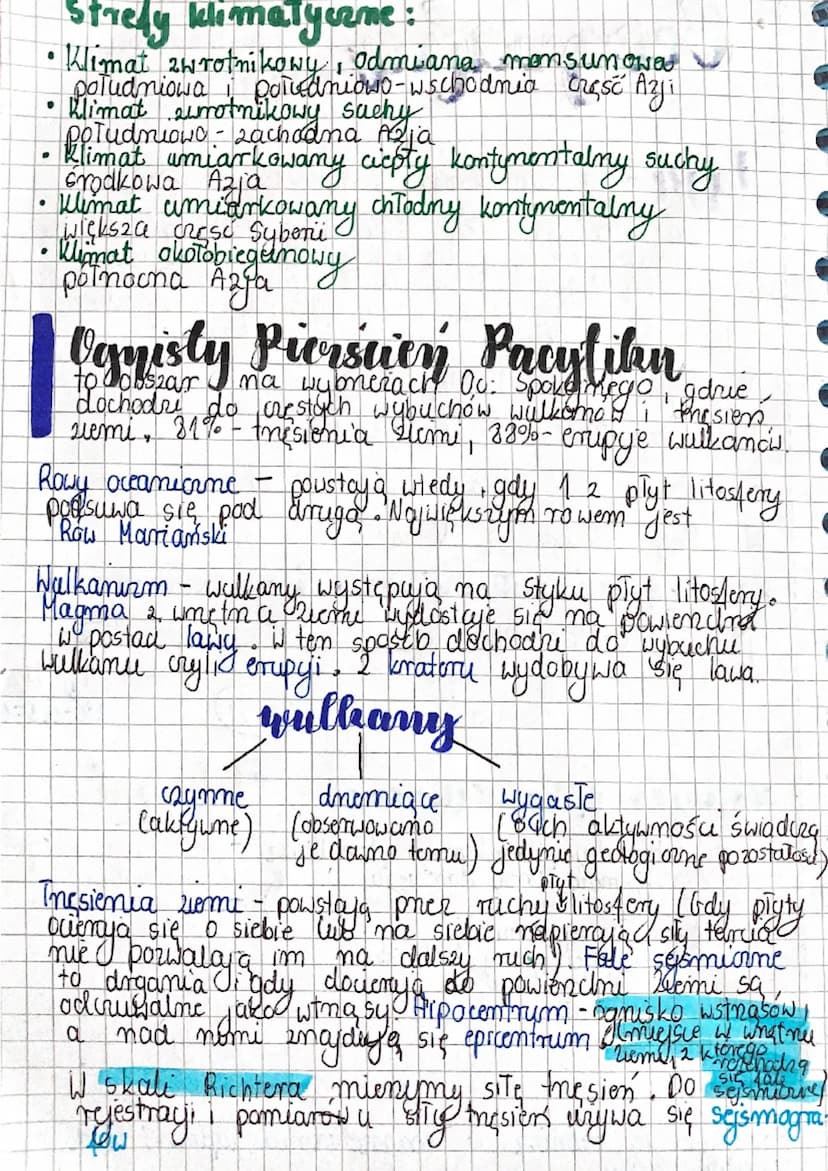 Strefy klimatyczne:
• Klimat zwrotnikowy, odmiana monsunowa
południowa i południowo-wschodnia część Azji
• Klimat zwrotnikowy suchy
południowo-zachodna Azja
• Klimat umiarkowany ciepły kontynentalny suchy
środkowa Azja
• Klimat umiarkowany chłodny kontynentalny
większa część Syberii
• Klimat okołobiegunowy
północna Azja
Ognisty Pierścień Pacyfiku
to obszar na wybrzeżach Oc. Spokojnego, gdzie
dochodzi do częstych wybuchów wulkanów i trzęsień
ziemi. 81% - trzęsienia ziemi, 88% - erupcje wulkanów.
Rowy oceaniczne - powstają wtedy, gdy 1 z płyt litosfery
podsuwa się pod drugą. Największym rowem jest
Rów Mariański
Wulkanizm - wulkany występują na styku płyt litosfery.
Magma z wnętrza ziemi wydostaje się na powierzchnię
w postaci lawy. W ten sposób dochodzi do wybuchu
wulkanu czyli erupcji. Z krateru wydobywa się lawa.
wulkany
czynne drzemiące wygasłe
(aktywne) (obserwowano (o ich aktywności świadczą
je dawno temu) jedynie geologiczne pozostałości)
Trzęsienia ziemi - powstają przez ruchy płyt litosfery (Gdy płyty
ocierają się o siebie lub na siebie napierają siły tarcia
nie pozwalają im na dalszy ruch). Fale sejsmiczne
to drgania gdy docierają do powierzchni Ziemi są
odczuwalne jako wstrząsy. Hipocentrum - ognisko wstrząsów,
a nad nimi znajduję się epicentrum (miejsce w wnętrzu
ziemi, z którego
rozchodzą
się fale
sejsmiczne)
W skali Richtera mierzymy siłę trzęsień. Do
rejestracji i pomiarów siły trzęsień używa się sejsmogra-
fów